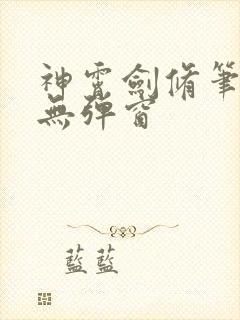 神霄劍脩筆
無彈窗
藍藍